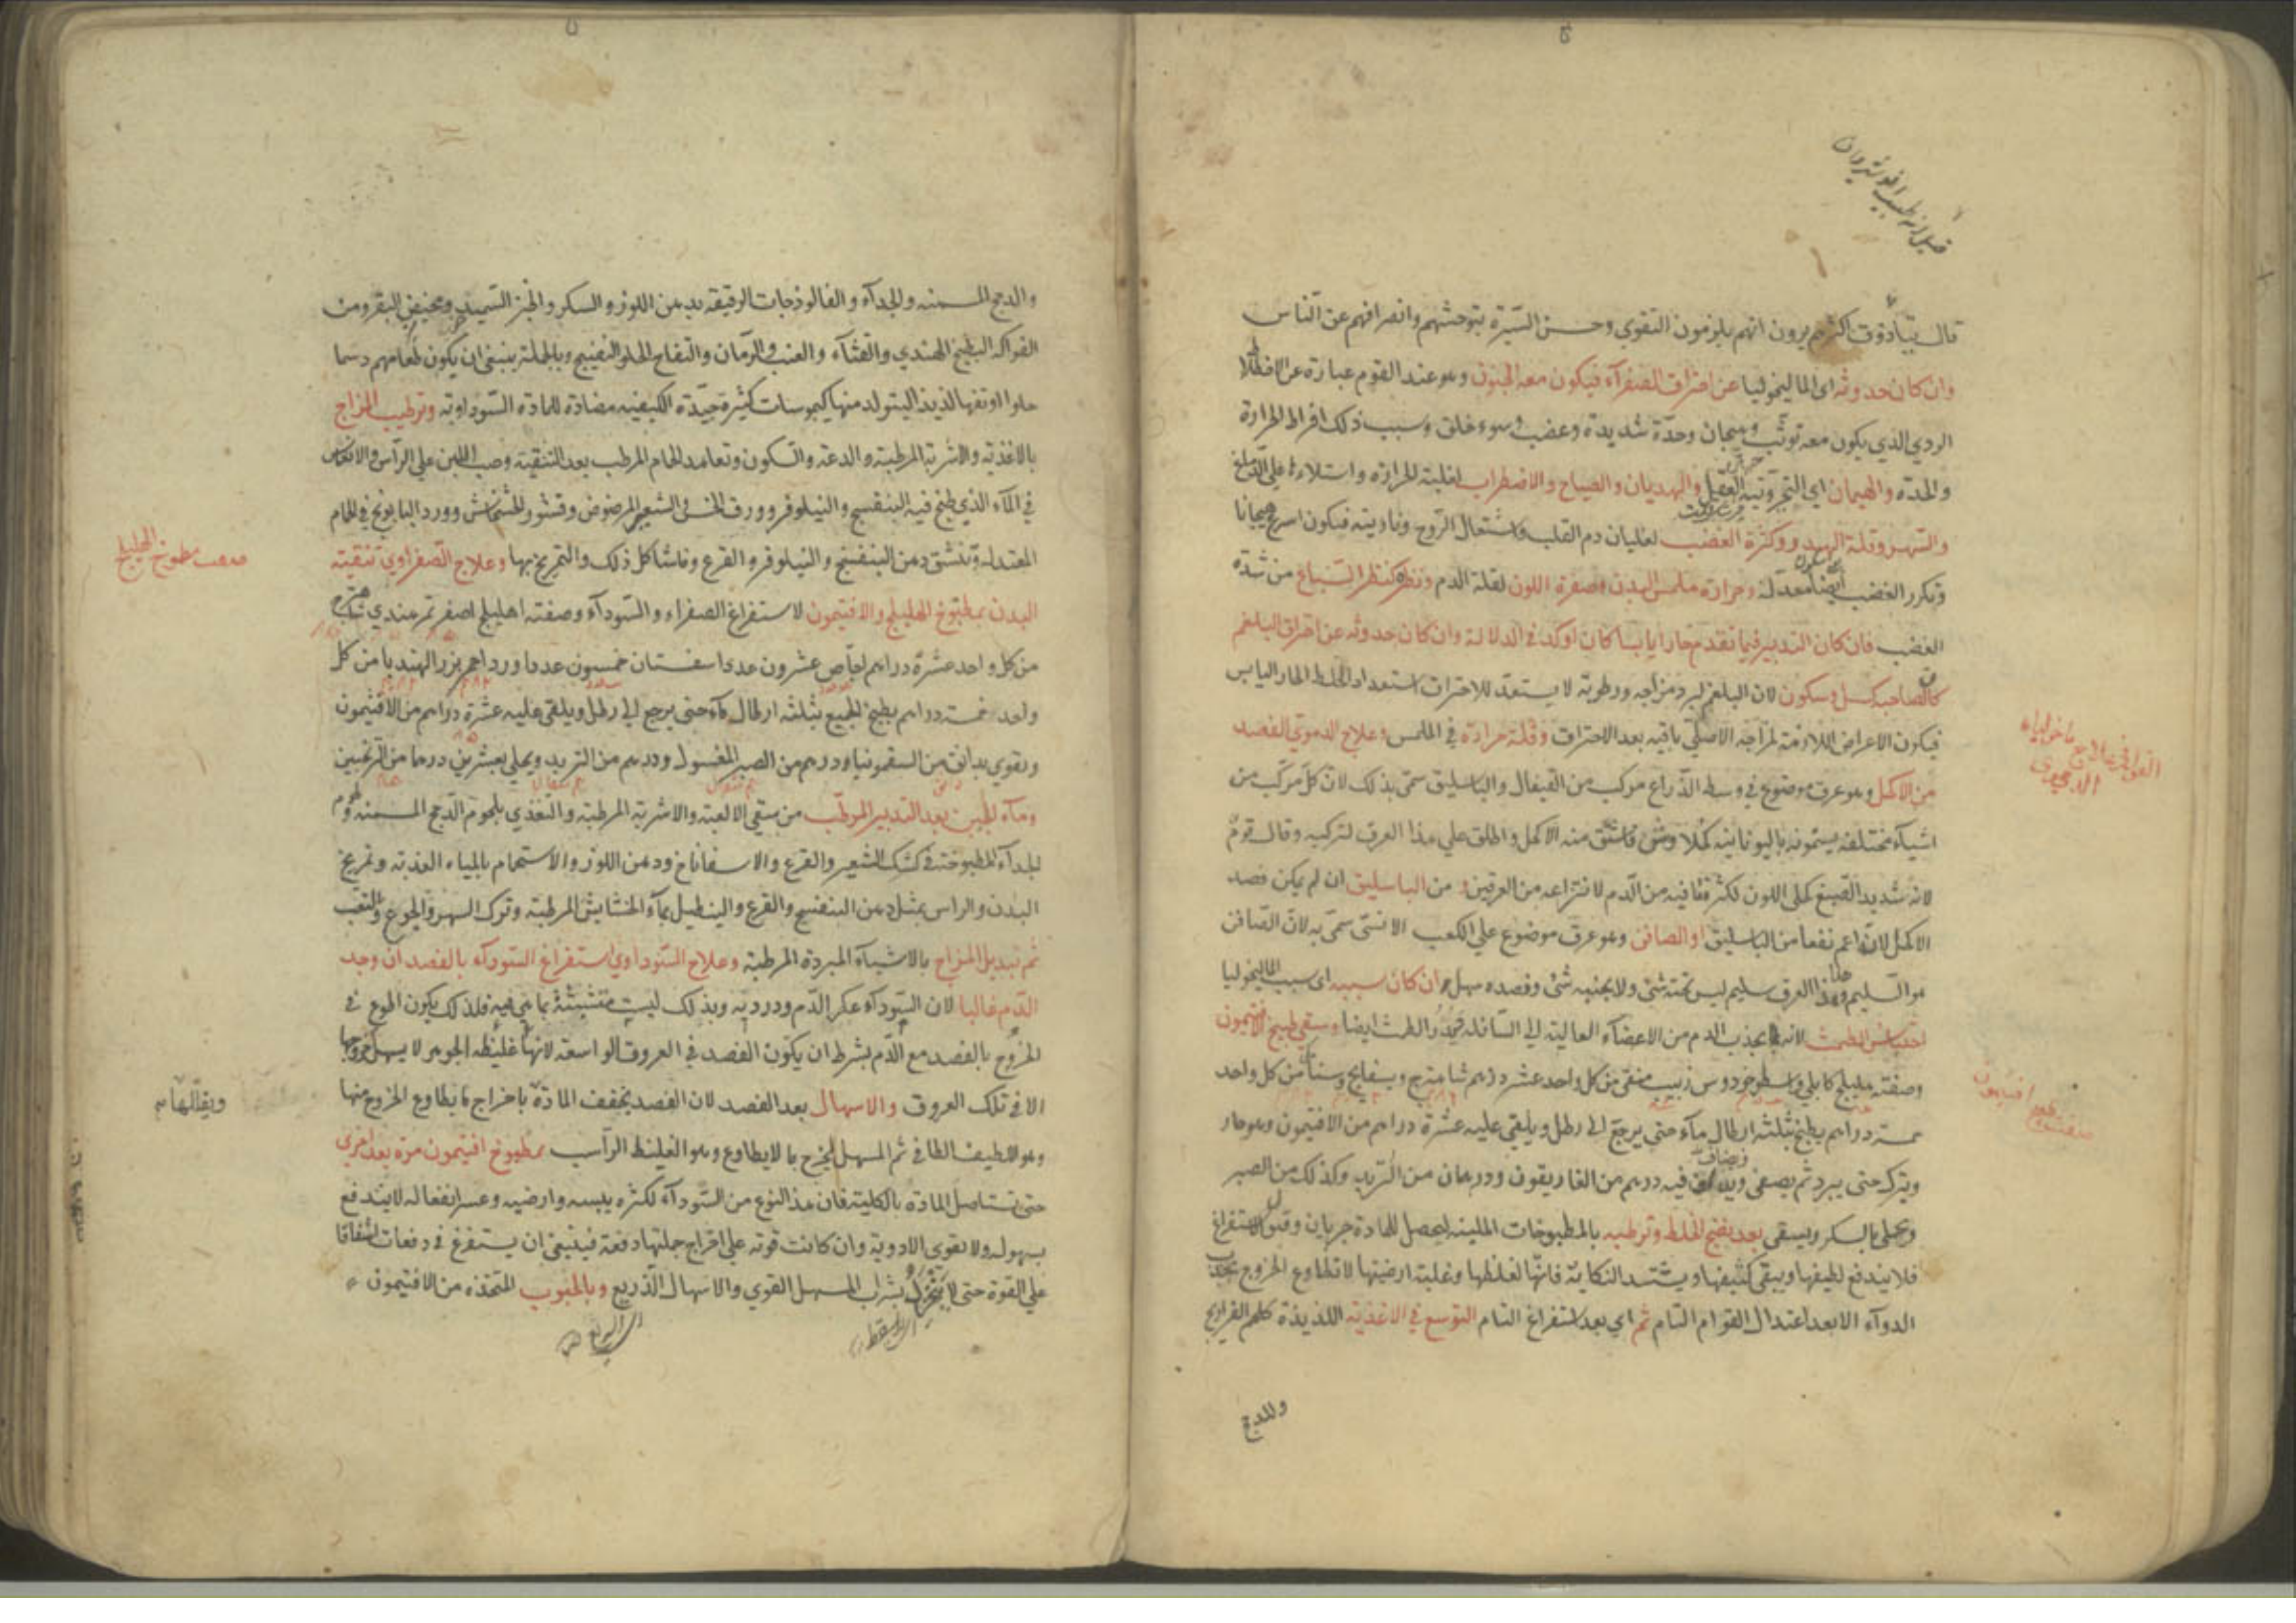 قيل انه طبيب انوشيروان
قال تياذوق اكثرهم يرون انهم يلزمون التقوي وحسن السيرة بتوحشهم وانصرافهم عن الناس
وان كان حدوثه اى الماليخوليا عن احتراق الصفرآء فيكون معه الجنون وهو عند القوم عبارة عن الاختلاط
الردي الذي يكون معه توثب وهيجان وحدّة شديدة وغضب وسوء خلق وسبب ذلك افراط الحرارة
والحدّة والهيمان اي التحير وتيه العقل والهذيان والصياح والاضطراب لغلبة الحرارة واستلاءها على الدماغ
والسهر وقلة الهدو وكثرة الغضب لغليان دم القلب واشتعال الروح وناريته فيكون اسرع هيجانا
وتكرر الغضب ايضا معدّ له وحرارة ملمس البدن وصفرة اللون لقلة الدم ونظره كنظر السباع من شدة
الغضب فان كان التدبير فيما تقدم حارا يابسا كان اوكد في الدلالة وان كان حدوثه عن احتراق البلغم
كان لصاحبه كسل وسكون لان البلغم لبرد مزاجه ورطوبته لا يستعدّ للاحتراق استعداد الخلط الحار اليابس
فيكون الاعراض اللازمة لمزاجه الاصلي باقية بعد الاحتراق وقلة حرارة في الملمس وعلاج الدموي الفصد
من الاكحل وهو عرق موضوع في وسط الذراع مركب من القيفال والباسليق سمّي بذلك لان كل مركب من
اشيآء مختلفة يسمونه باليونانية كحلا وش فاشتق منه الاكحل واطلق علي هذا العرق لتركيبه وقال قوم
لانه شديد الصبغ كحلي اللون لكثرة ما فيه من الدم لانتزاعه من العرقين ومن الباسليق ان لم يكن فصد
الاكحل لانّه اعم نفعا من الباسليق او الصافن وهو عرق موضوع علي الكعب الانسي سمّي به لان الصافن
هو السليم وهذا العرق سليم ليس تحته شئ ولا بجنبه شئ وفصده سهل ان كان سببه اى سبب الماليخوليا
احتباس الطمث لانه يجذب الدم من الاعضآء العالية الي السافلة ويدرّ الطمث ايضا وسقي طبيخ الافتيمون
وصفته هليلج كابلي واسطوخودوس زبيب منقى من كل واحد عشرة دراهم شاهترج وبسفايج وسنا من كل واحد
خمسة دراهم يطبخ بثلثة ارطال مآء حتي يرجع الي رطل ويلقي عليه عشرة دراهم من الافتيمون وهو حار
ويترك حتى يبرد ثم يصفى ويضاف فيه درهم من الغاريقون ودرهمان من التربد وكذلك من الصبر
ويحلى بالسكر ويسقي بعد نضج الخلط وترطيبه بالمطبوخات الملينة ليحصل للمادة جريان وقبول للاستفراغ
فلا يندفع لطيفها ويبقى كثيفها ويشتد النكاية فانها لغلظها وغلبة ارضيتها لا تطاوع الخروج بجذب
الدوآء الا بعد اعتدال القوام التام ثم اي بعد استفراغ التام التوسع في الاغذية اللذيذة كلحم الفراريج
والدجج
والدجج المسمنة والجدآء والفالوذجات الرقيقة بدهن اللوز والسكر والخبز السميد ومخيض البقر ومن
الفواكه البطيخ الهندي والقثآء والعنب والرمان والتفاح الحلو النضيج وبالجملة ينبغي ان يكون طعامهم دسما
حلوا او تفها لذيذا ليتولد منها كيموسات كثيرة جيدة الكيفية مضادة للمادة السوداوية وترطيب المزاج
بالاغذية والاشربة المرطبة والدعة والسكون وتعاهد الحمام المرطب بعد التنقية وصب اللبن علي الرأس والانغماس
في المآء الذي طبخ فيه البنفسج والنيلوفر وورق الخس والشعير المرضوض وقشور الخشخاش وورد البابونج في الحمام
المعتدلة وتنشق دهن البنفسج والنيلوفر والقرع وما شاكل ذلك والتمريخ بها وعلاج الصفراوي تنقية
البدن بمطبوخ الهليلج والافتيمون لاستفراغ الصفراء والسودآء وصفته اهليلج اصفر تمر هندي
من كل واحد عشرة دراهم اجاص عشرون عددا سفستان خمسون عددا ورد احمر بزر الهندبا من كل
واحد خمسة دراهم يطبخ الجميع بثلثة ارطال مآء حتى يرجع الي رطل ويلقي عليه عشرة دراهم من الافتيمون
ويقوي بدانق من السقمونيا ودرهم من الصبر المغسول ودرهم من التربد ويحلي بعشرين درهما من الترنجبين
ومآء الجبن بعد التدبير المرطب من سقي الالعبة والاشربة المرطبة والتغذي بلحوم الدجج المسمنة ولحوم
الجدآء المطبوخة في كشك الشعير والقرع والاسفاناخ ودهن اللوز والاستحمام بالمياه العذبة وتمريخ
البدن والراس بمثل دهن البنفسج والقرع والنيطل بمآء الحشايش المرطبة وترك السهر والجوع والتعب
ثم تبديل المزاج بالاشيآء المبردة المرطبة وعلاج السوداوي استفراغ السودآء بالفصد ان وجد
الدم غالبا لان السودآء عكر الدم ودرديه وبذلك ليست متشبثة بما هي فيه فلذلك يكون الطوع في
الخروج بالفصد مع الدم بشرط ان يكون الفصد في العروق الواسعة لانها غليظة الجوهر لا يسهل خروجها
الا في تلك العروق والاسهال بعد الفصد لان الفصد يخفف المادة باخراج ما يطاوع الخروج منها
وهو اللطيف الطافي ثم المسهل يخرج ما لا يطاوع وهو الغليظ الراسب بمطبوخ افتيمون مرة بعد اخري
حتى تستاصل المادة بالكلية فان هذا النوع من السودآء لكثرة يبسه وارضيه وعسر انفعاله لا يندفع
بسهولة ولا تقوي الادوية وان كانت قوته علي اخراج جملتها دفعة فينبغي ان يستفرغ في دفعات اشفاقا
علي القوة حتى لا تخور بشراب المسهل القوي والاسهال الذريع وبالحبوب المتخذة من الافتيمون
صفت مطبوخ الهليلج